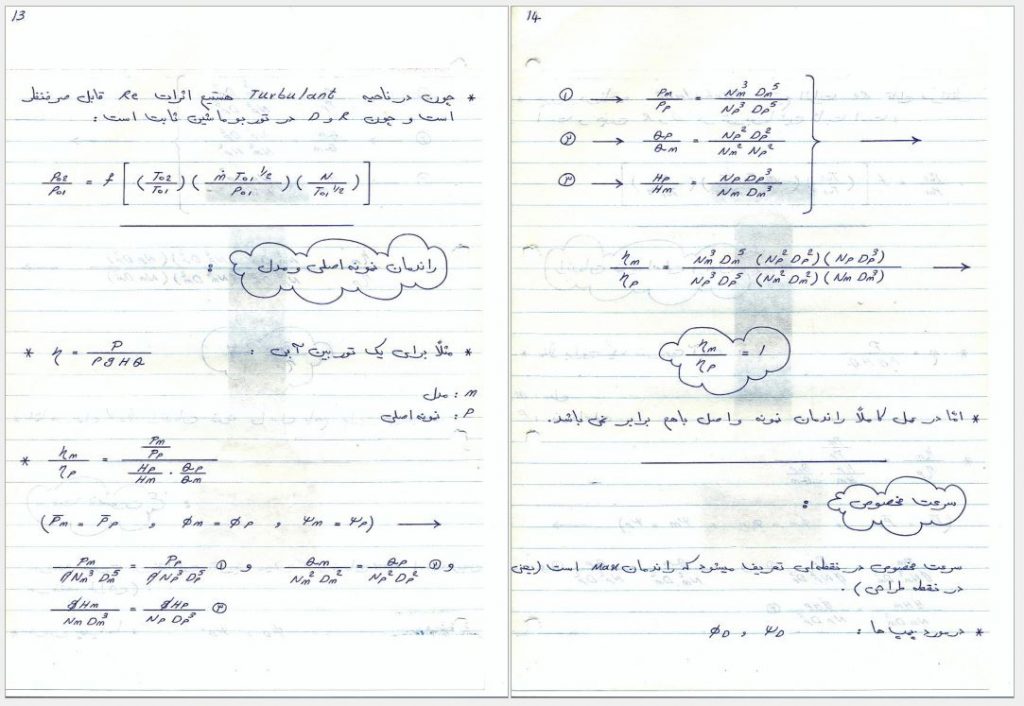 13
* چون در ناحیه Turbulant هستیم اثرات Re قابل صرفنظر
است و چون R و D در توربوماشین ثابت است:
P02/P01 = f [ (T02/T01) ( ṁ T01^1/2 / P01 ) ( N / T01^1/2 ) ]
راندمان نمونه اصلی و مدل :
* مثلاً برای یک توربین آبی : η = P / ρgHQ *
m : مدل
P : نمونه اصلی
* ηm/ηp = (Pm/Pp) / (Hp/Hm . Qp/Qm)
(P̄m = P̄p , φm = φp , ψm = ψp) →
Pm / ρNm³ Dm⁵ = Pp / ρNp³ Dp⁵ ① و Qm / Nm² Dm² = Qp / Np² Dp² ② و
gHm / Nm Dm³ = gHp / Np Dp³ ③
14
① → Pm/Pp = Nm³ Dm⁵ / Np³ Dp⁵
② → Qp/Qm = Np² Dp² / Nm² Np² →
③ → Hp/Hm = Np Dp³ / Nm Dm³
ηm/ηp = Nm³ Dm⁵ (Np² Dp²)(Np Dp³) / Np³ Dp⁵ (Nm² Dm²)(Nm Dm³) →
ηm/ηp = 1
* امّا در عمل کاملاً راندمان نمونه و اصل باهم برابر نمی باشد.
سرعت مخصوص :
سرعت مخصوص در نقطه‌ای تعریف میشود که راندمان max است (یعنی
در نقطه طراحی).
* در مورد پمپ ها : φD , ψD